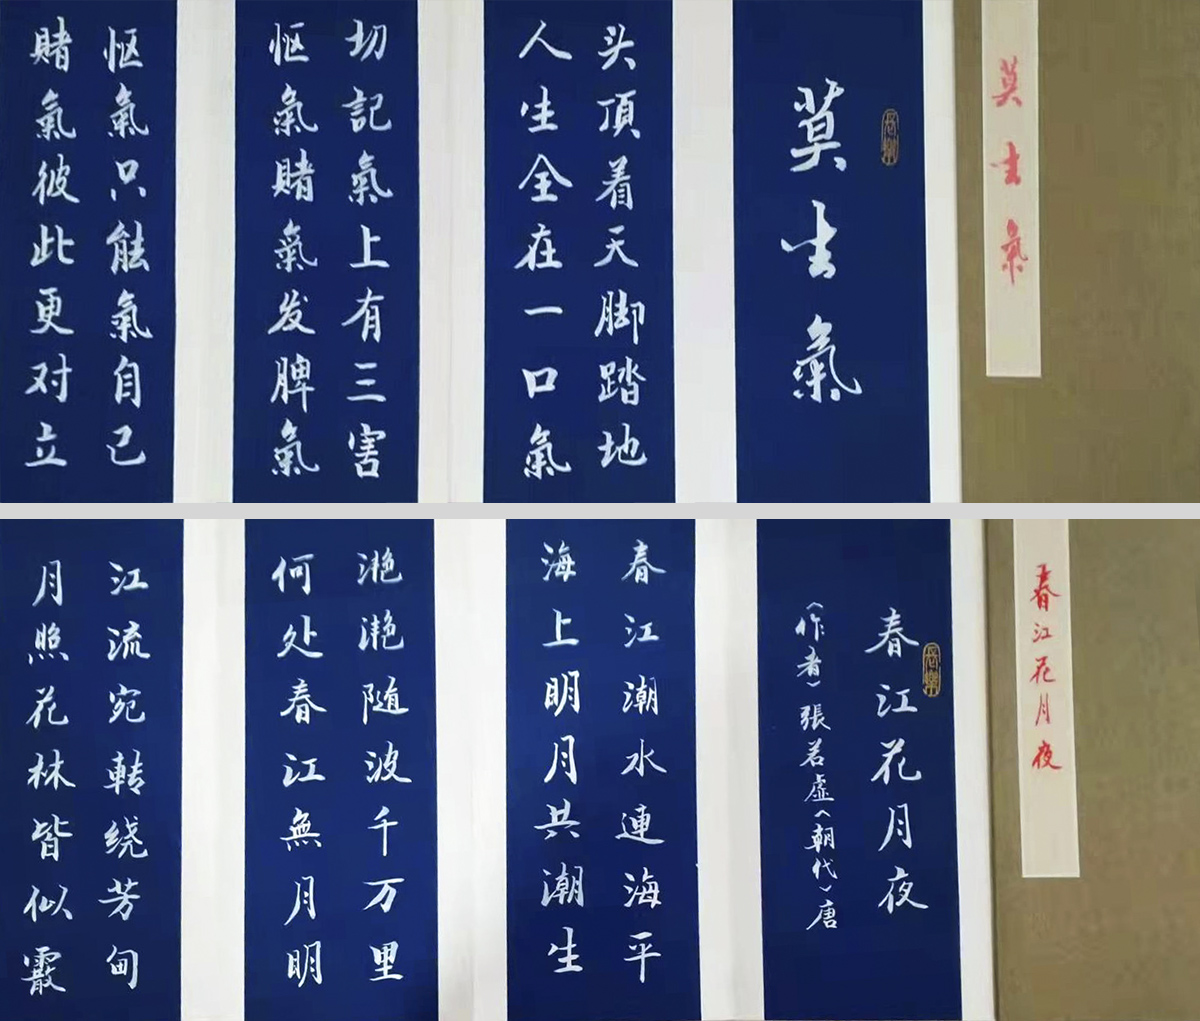 莫生氣
長樂
莫生氣
头頂着天脚踏地
人生全在一口氣
切記氣上有三害
怄氣賭氣发脾氣
怄氣只能氣自己
賭氣彼此更对立
春江花月夜
長樂
春江花月夜
（作者）張若虛（朝代）唐
春江潮水連海平
海上明月共潮生
滟滟随波千万里
何处春江無月明
江流宛转绕芳甸
月照花林皆似霰